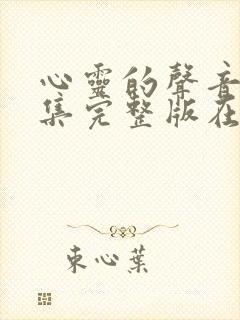 心靈的聲音
集完整版在
束心葉